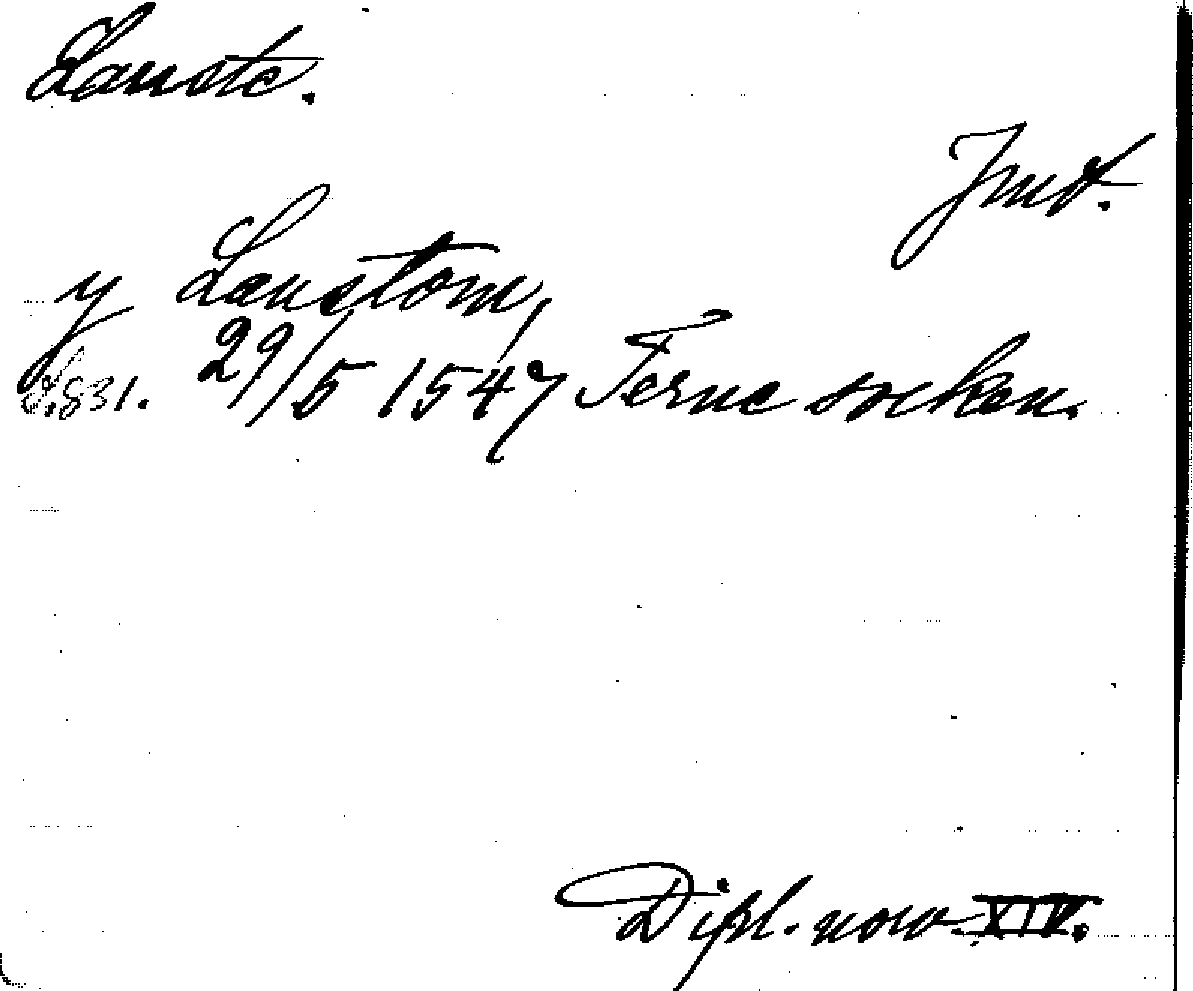 Lauste.
Jmt.
y Laustom,
S. 831. 29/5 1547 Ferne socken.
Dipl. norv. XIV.